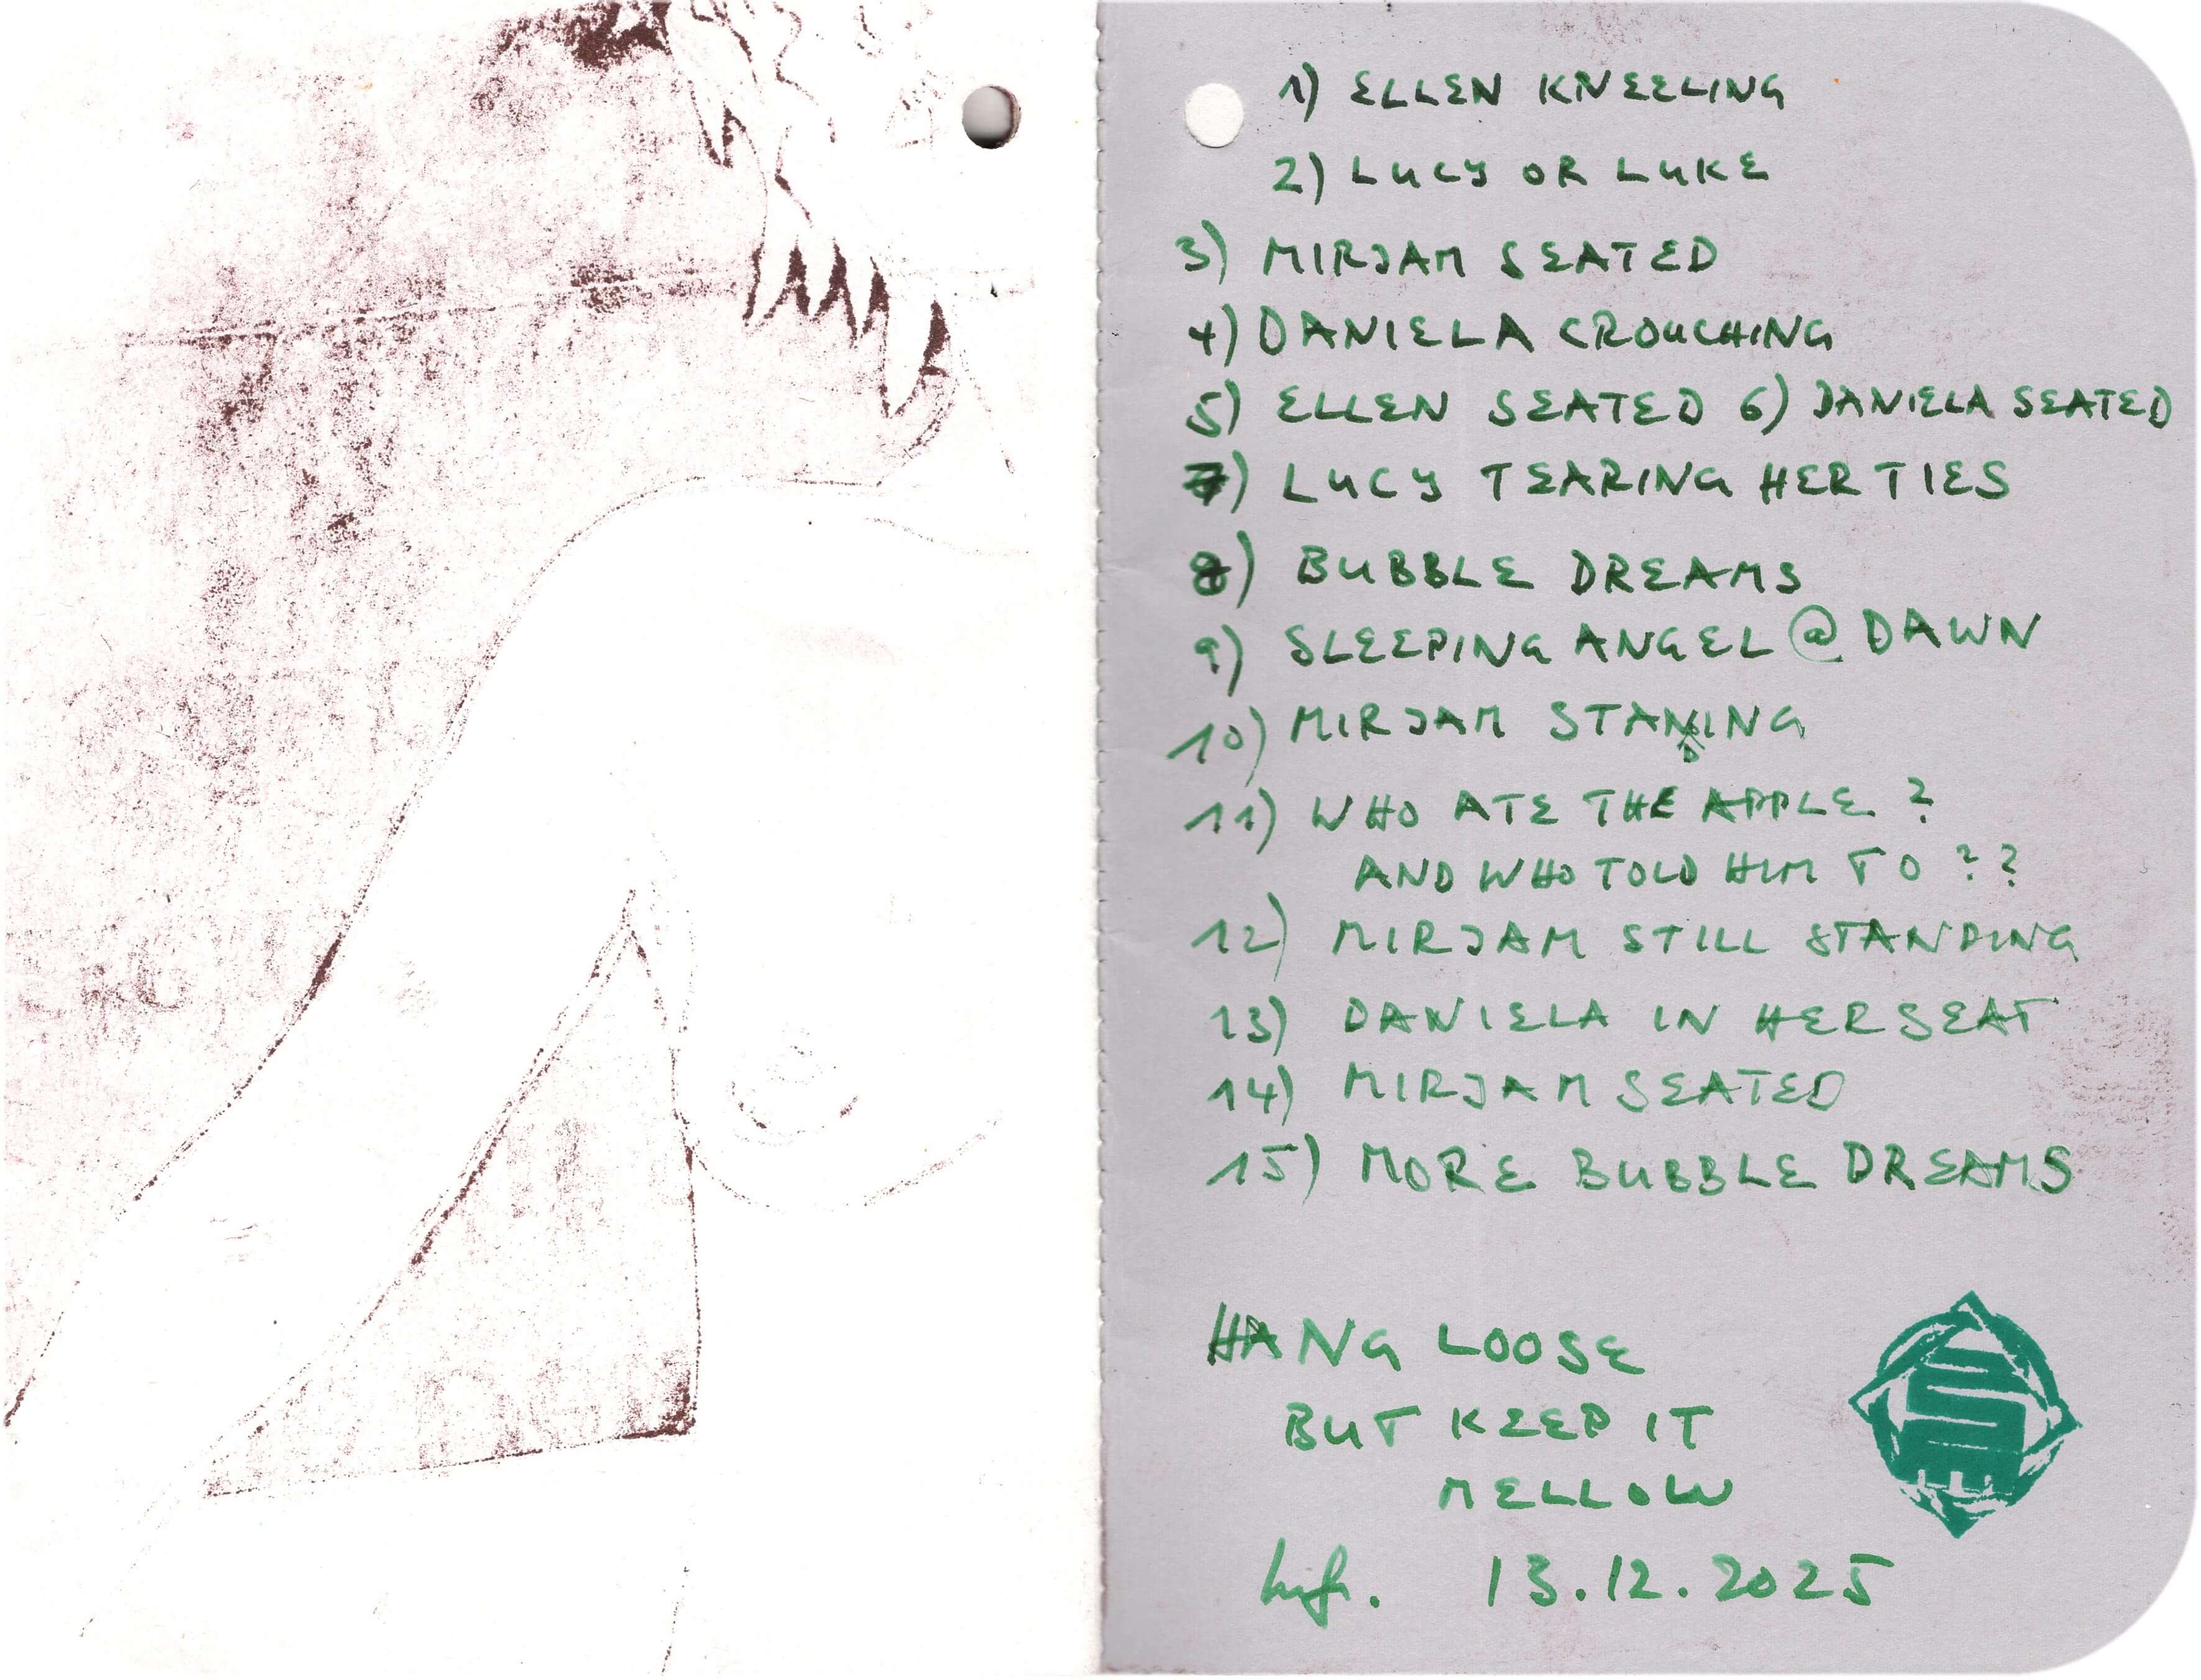 1) ELLEN KNEELING
2) LUCY OR LUKE
3) MIRJAM SEATED
4) DANIELA CROUCHING
5) ELLEN SEATED 6) DANIELA SEATED
7) LUCY TEARING HER TIES
8) BUBBLE DREAMS
9) SLEEPING ANGEL @ DAWN
10) MIRJAM STANDING
11) WHO ATE THE APPLE ?
AND WHO TOLD HIM TO ??
12) MIRJAM STILL STANDING
13) DANIELA IN HER SEAT
14) MIRJAM SEATED
15) MORE BUBBLE DREAMS
HANG LOOSE
BUT KEEP IT
MELLOW
13.12.2025